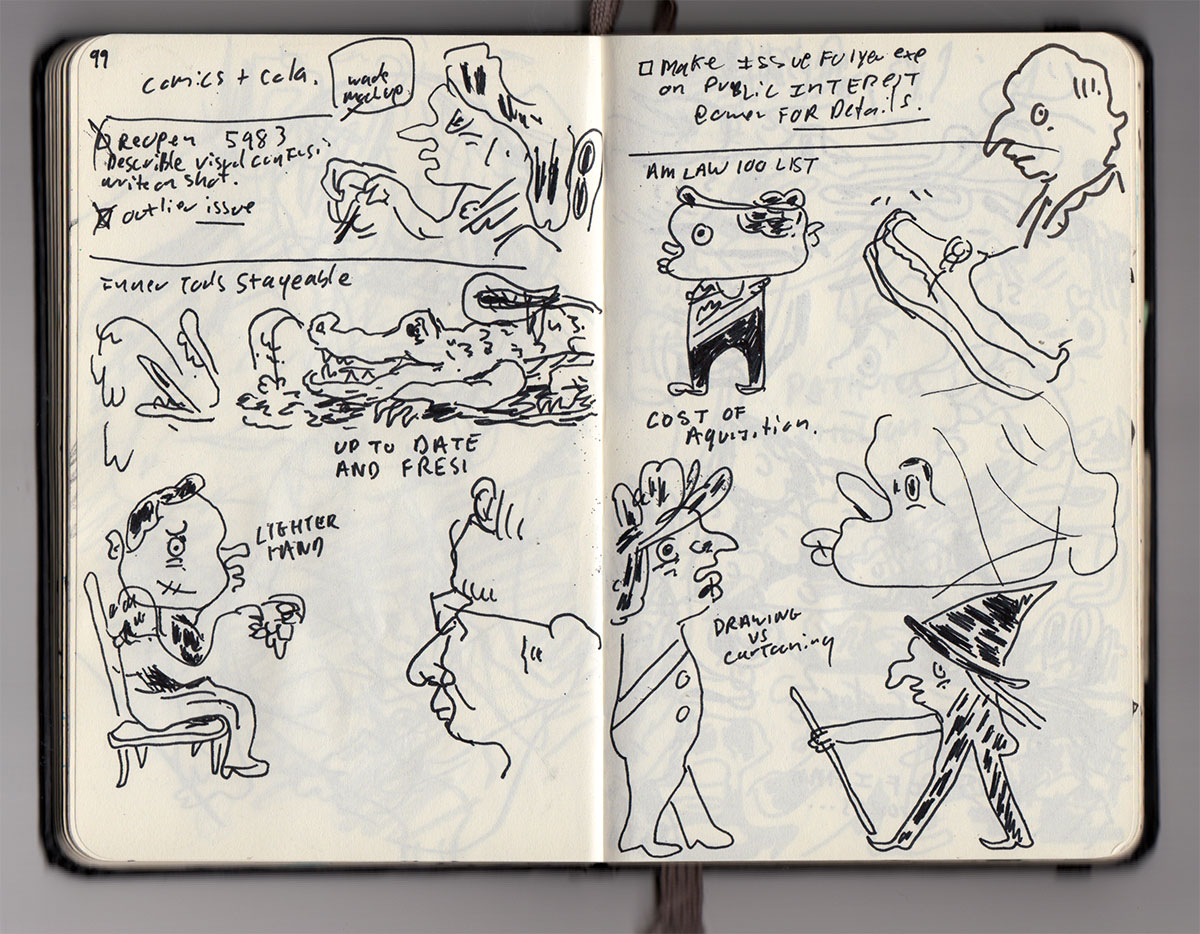 99
comics + cola.
wade
mockup
Reopen 5983
Describe visual confusi
write on shot.
outlier issue
Stayeable
UP TO DATE
AND FRESI
LIGHTER
HAND
Make issue For exp
on PUBLIC INTEREST
FOR Details.
AM LAW 100 LIST
COST OF
Aquisition.
DRAWING
VS
cartooning